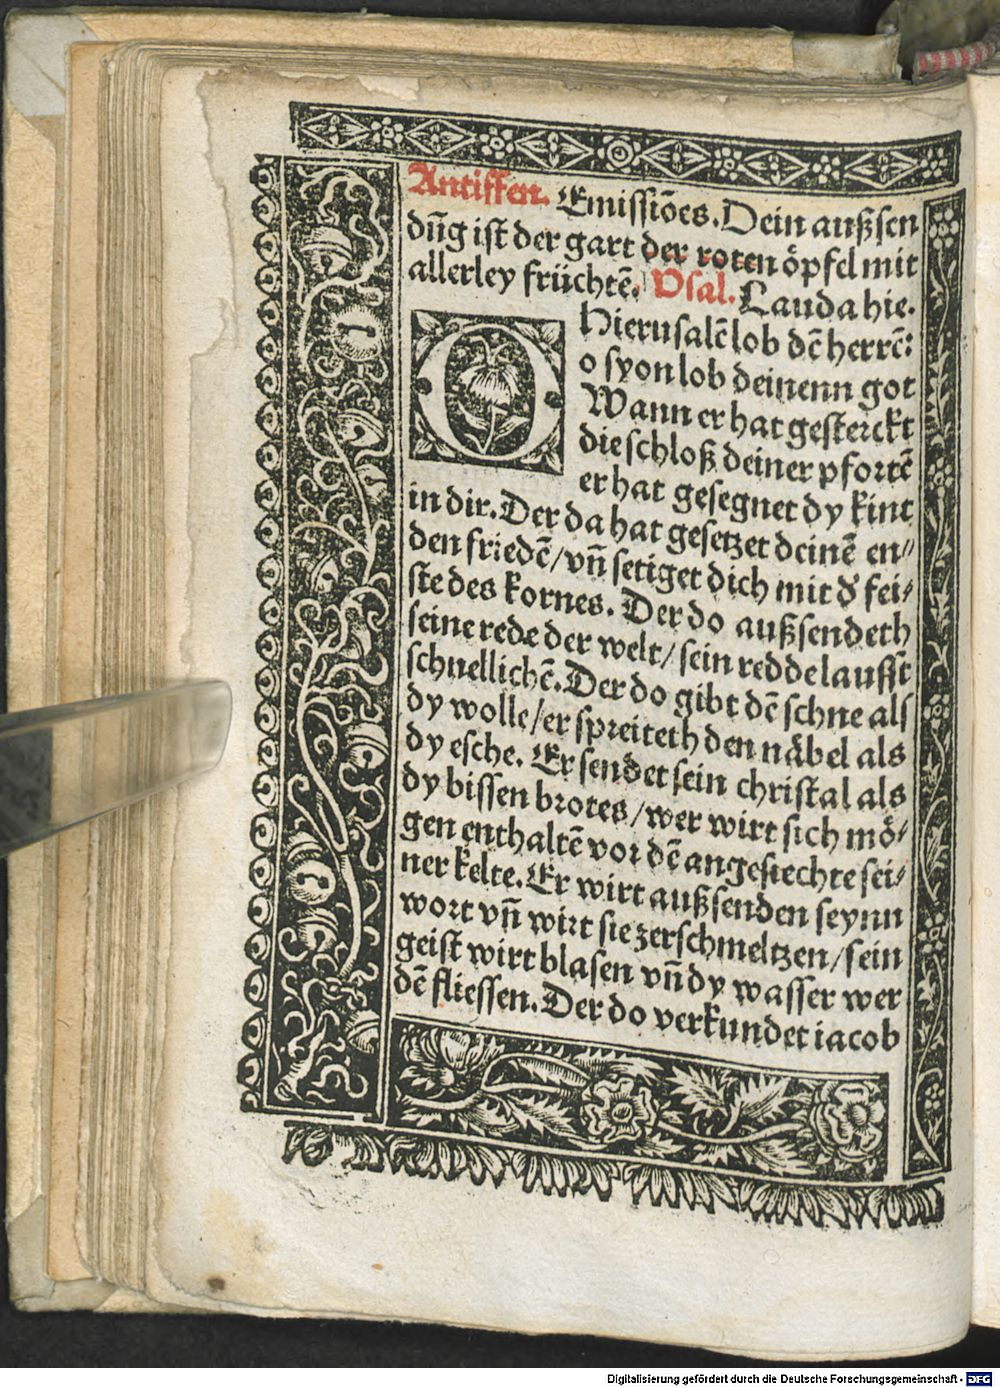 Antiffen. Emissiões. Dein außsen
dūg ist der gart der roten öpfel mit
allerley früchtē. Psal. Lauda hie.
O Hierusalē lob dē herrē:
o syon lob deinenn got
Wann er hat gesterckt
die schloß deiner pfortē
er hat gesegnet dy kint
in dir. Der da hat gesetzet deinē en⸗
den friedē/vñ setiget dich mit d̕ fei⸗
ste des kornes. Der do außsendeth
seine rede der welt/ sein redde laufft
schnellichē. Der do gibt dē schne als
dy wolle/er spreiteth den näbel als
dy esche. Er sendet sein christal als
dy bissen brotes/wer wirt sich mö⸗
gen enthaltē vor dē angesiechte sei⸗
ner kelte. Er wirt außsenden seynn
wort vñ wirt sie zerschmeltzen/sein
geist wirt blasen vñ dy wasser wer
dē fliessen. Der do verkundet iacob
Digitalisierung gefördert durch die Deutsche Forschungsgemeinschaft - DFG